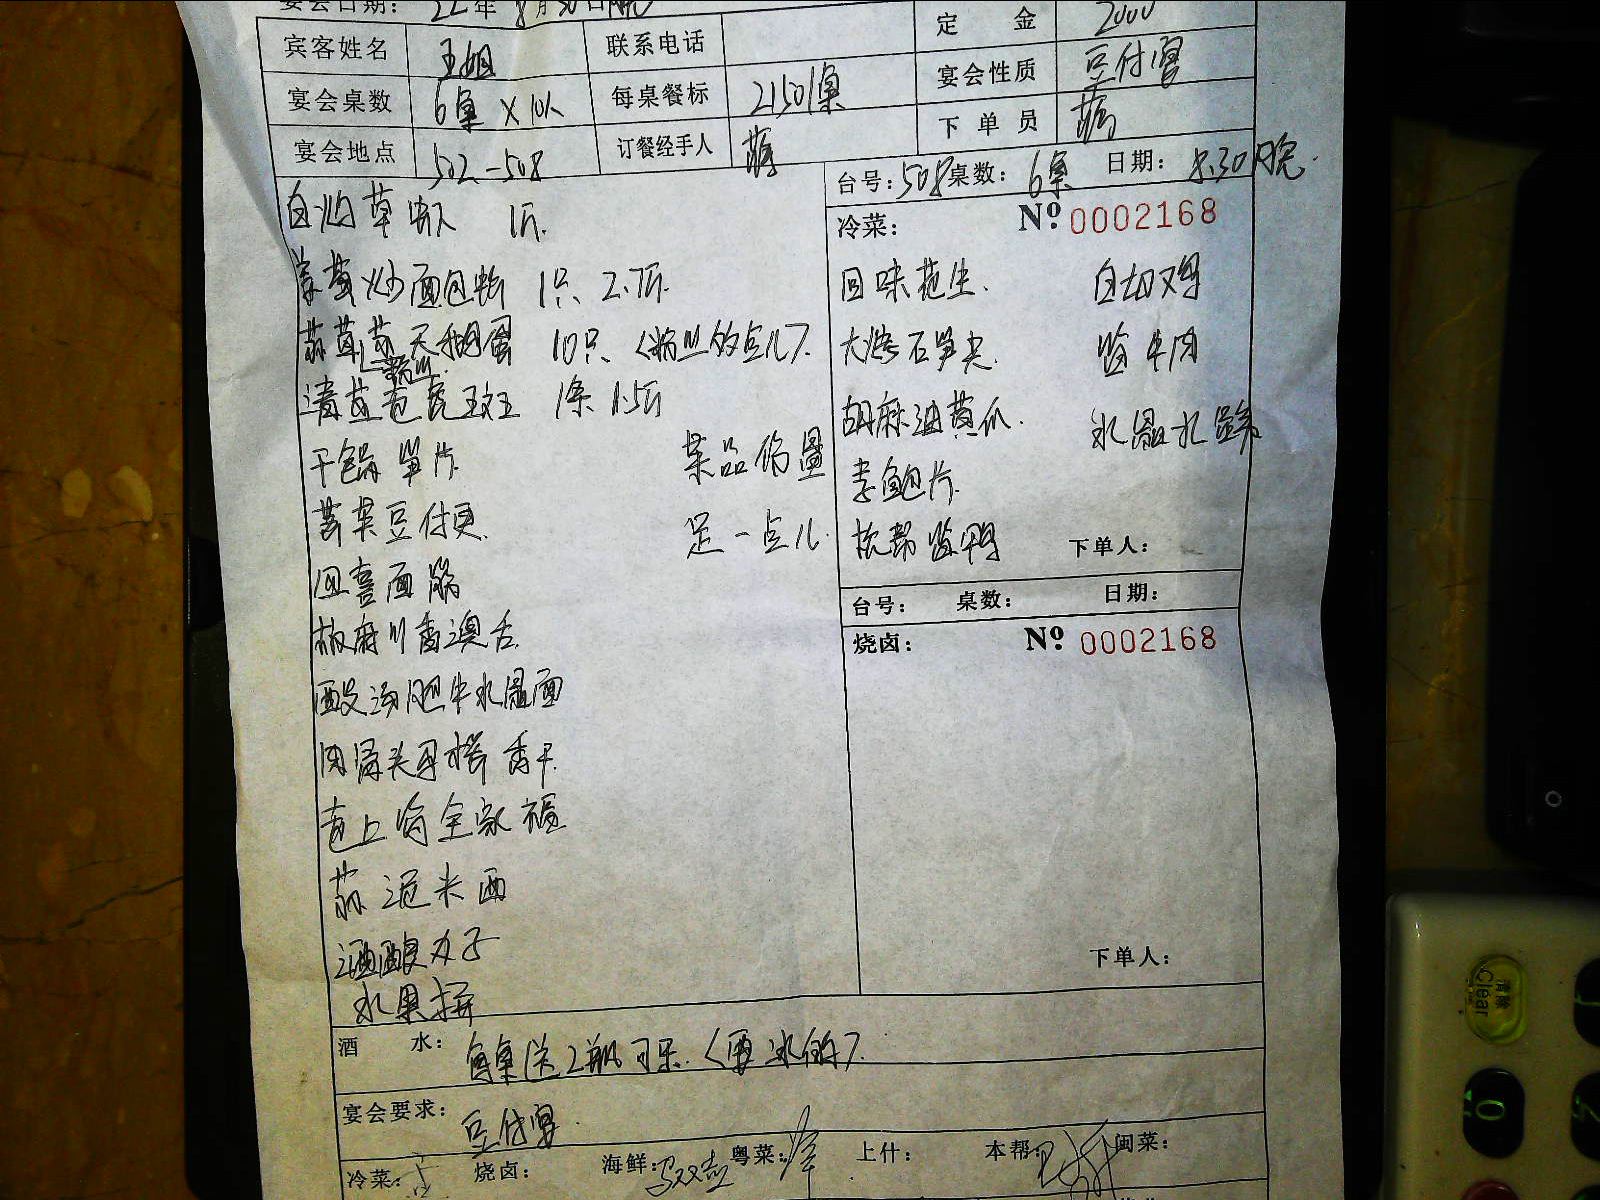 宴会日期: 22年8月30日晚
宾客姓名 王姐 联系电话 定金 2000
宴会桌数 6桌×10人 每桌餐标 2150/桌 宴会性质 豆付宴
宴会地点 502-508 订餐经手人 下单员
台号: 508 桌数: 6桌 日期: 8.30晚.
冷菜: Nº 0002168
白灼草虾 1斤.
炒面包蟹 1只、2.7斤.
10只、(粉丝的点儿).
粉丝
清蒸老虎斑 1条 1.5斤
干锅笋片.
菜品份量
足一点儿.
豆付更.
四喜面筋
酸汤肥牛水晶面
肉骨头 香干.
全家福
西米
酒酿丸子
水果拼
回味花生. 白切鸡
大烤石笋尖. 酱牛肉
胡麻油黄瓜. 水晶
素鲍片.
杭帮酱鸭 下单人:
台号: 桌数: 日期:
烧卤: Nº 0002168
下单人:
酒水: 每桌送2瓶可乐. (要冰的).
宴会要求: 豆付宴.
冷菜: 烧卤: 海鲜: 粤菜: 上什: 本帮: 闽菜:
清除
Clear
0
2